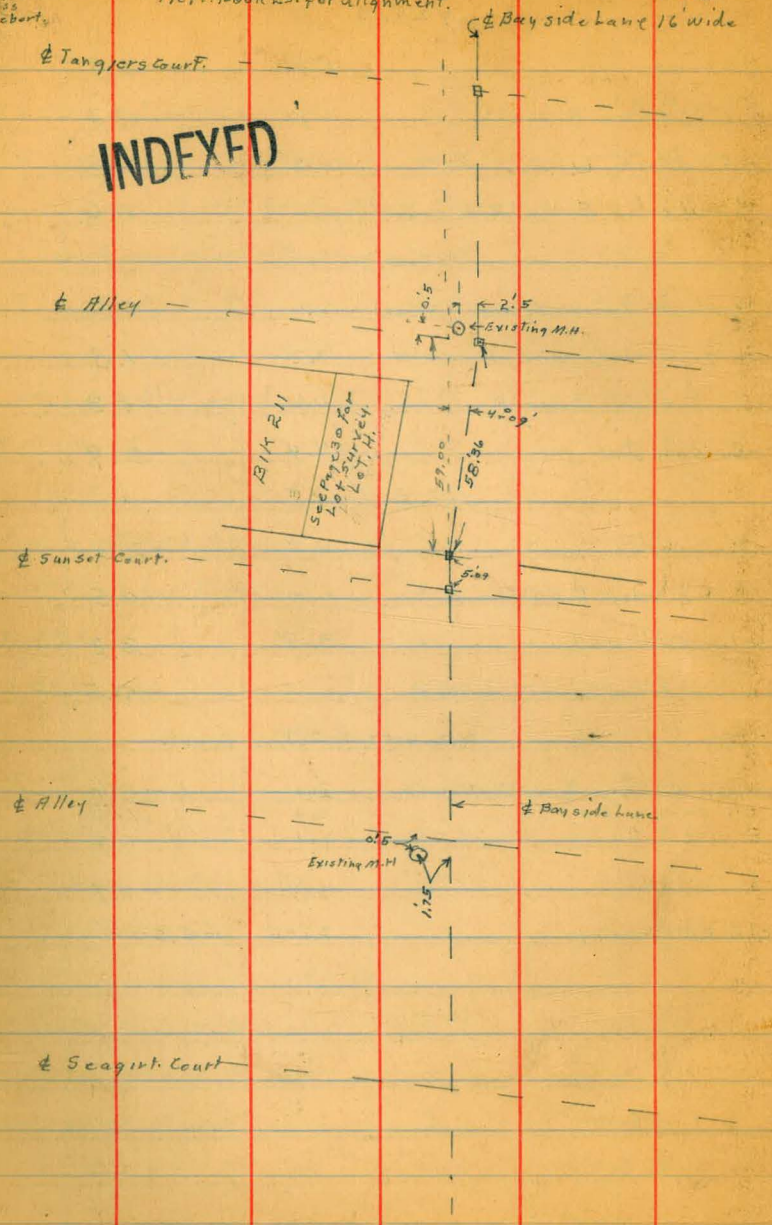 for alignment.
℄ Bayside Lane 16' wide
℄ Tangiers Court.
INDEXED
℄ Alley
0.'5
2.'5
Existing M.H.
4°09'
Blk 211
See Page 30 For
Lot Survey
Lot. H.
59.00
58.'36
℄ Sunset Court.
5.'09
℄ Alley
℄ Bayside Lane
0.'5
Existing M.H
1.'75
℄ Seagirt. Court